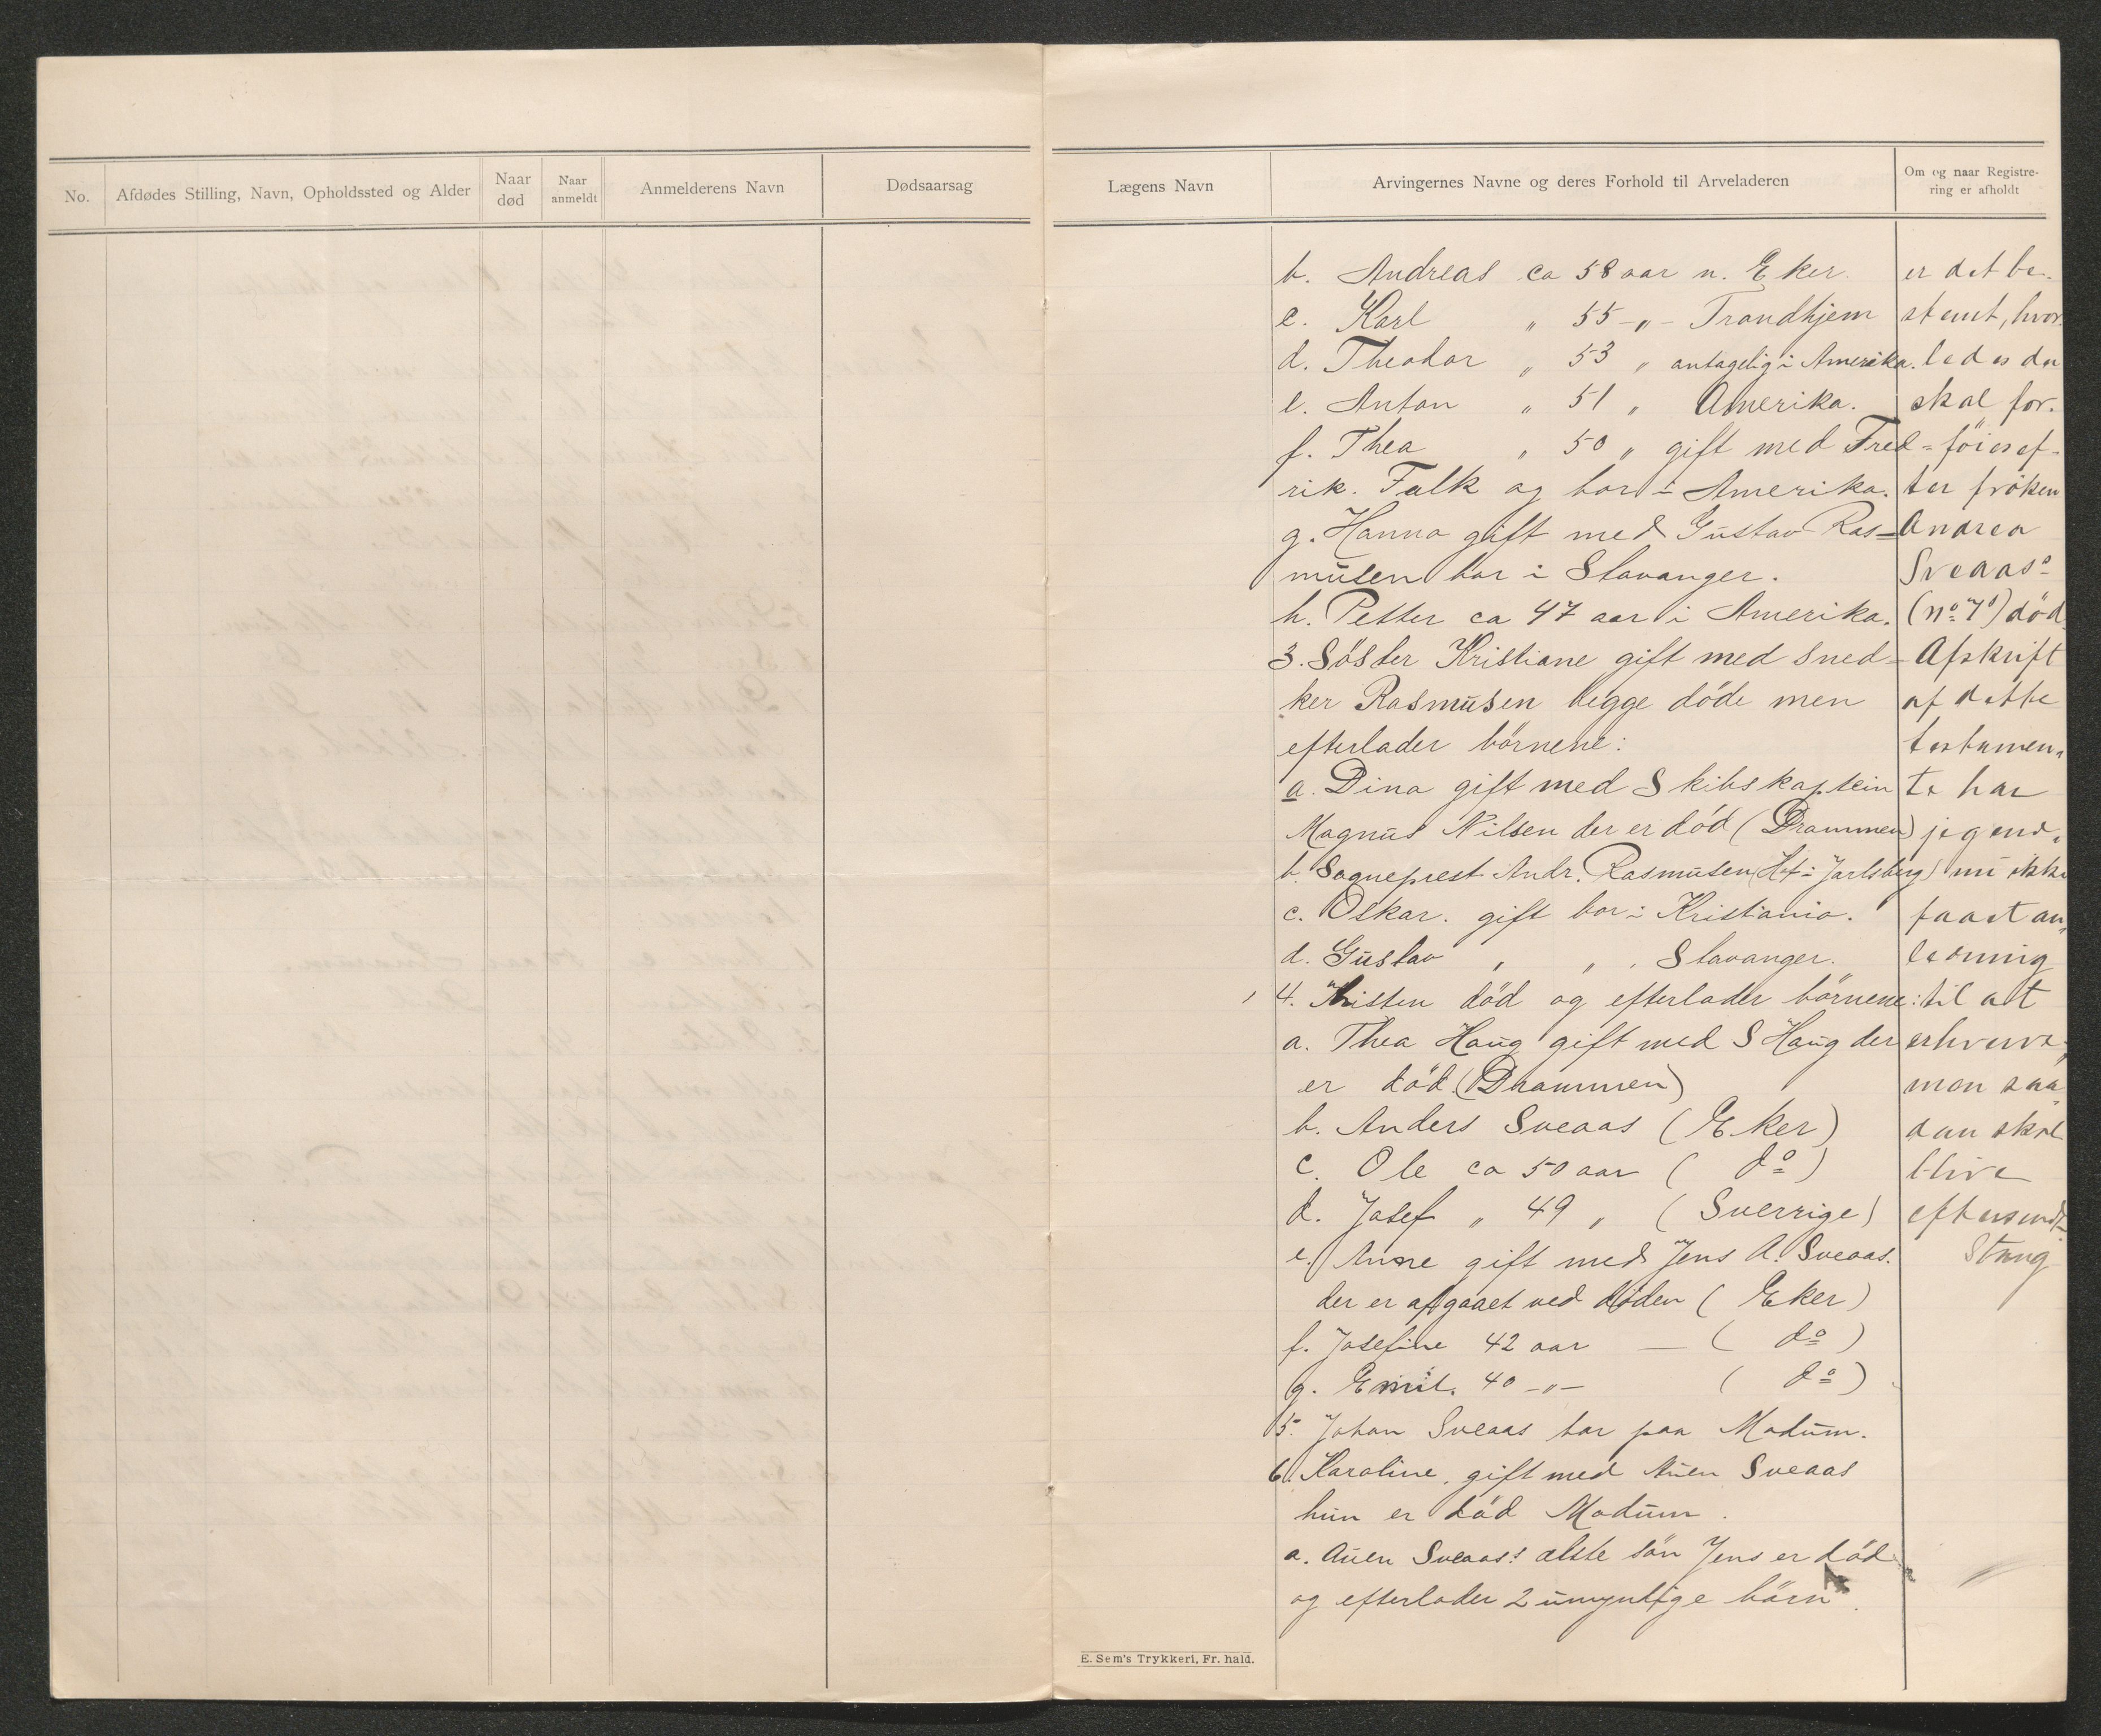 No.
Afdødes Stilling, Navn, Opholdssted og Alder
Naar
død
Naar
anmeldt
Anmelderens Navn
Dødsaarsag
Lægens Navn
Arvingernes Navne og deres Forhold til Arveladeren
Om og naar Registre-
ring er afholdt
b. Andreas ca 58 aar n. Eker
c. Karl " 55 -"- Trondhjem
d. Theodor " 53 " antagelig i Amerika.
e. Anton " 51 " Amerika.
f. Thea " 50 " gift med Fred=
rik. Falk og bor i Amerika.
g. Hanna gift med Gustav Ras=
musen bor i Stavanger.
h. Petter ca 47 aar i Amerika.
3. Söster Kristiane gift med Sned-
ker Rasmusen begge döde men
efterlader börnene:
a. Dina gift med Skibskaptein
Magnus Nilsen der er död (Drammen)
b. Sogneprest Andr. Rasmusen (Hof i Jarlsberg)
c. Oskar. gift bor i Kristiania.
d. Gustav " " . Stavanger.
4. Kristen död og efterlader börnene:
a. Thea Haug gift med S Haug der
er död. (Drammen)
b. Anders Sveaas (Eker)
c. Ole ca 50 aar ( do )
d. Josef " 49 " (Sverrige)
e. Anne gift med Jens A. Sveaas.
der er afgaaet ved döden ( Eker)
f. Josefine 42 aar — ( do )
g. Emil. 40 -"- ( do )
5. Johan Sveaas bor paa Modum.
6. Karoline. gift med Auen Sveaas
hun er död Modum.
a. Auen Sveaas: ælste sön Jens er död
og efterlader 2 umyntige börn.
er det be-
stemt, hvor
ledes der
skal for-
föies ef-
ter fröken
Andrea
Sveaas
(no 7) död.
Afskrift
af dette
testamen-
te har
jeg end-
nu ikke
faaet an-
ledning
til at
erhverve,
men saa-
dan skal
blive
eftersendt
Stang
E. Sem's Trykkeri, Fr. hald.